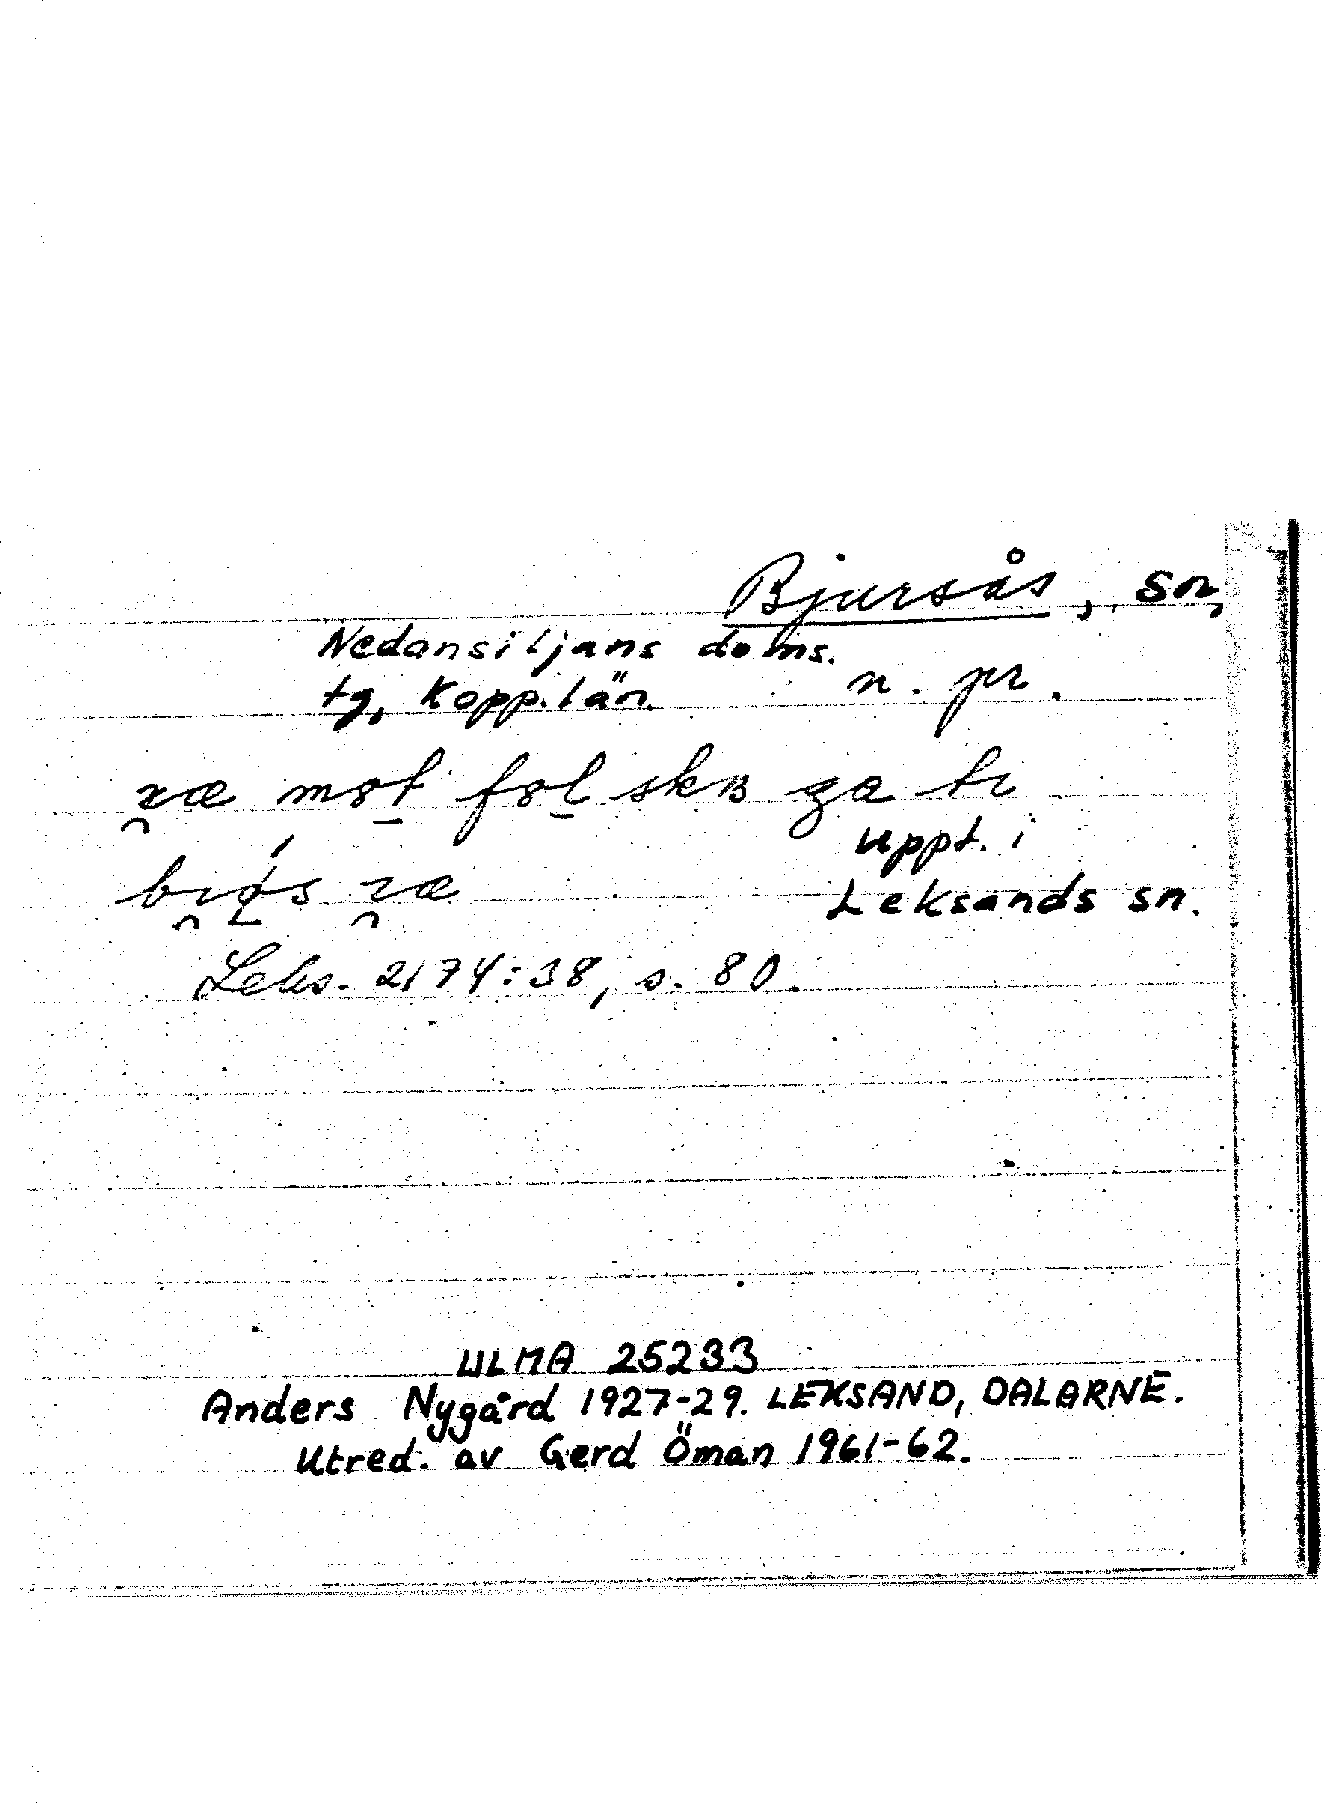 Bjursås, sn,
Nedansiljans doms.
tg, Kopp.län. n. pr.
uppt. i
Leksands sn.
Leks. 2174:38, s. 80.
ULMA 25233
Anders Nygård 1927-29. LEKSAND, DALARNE.
Utred. av Gerd Öman 1961-62.